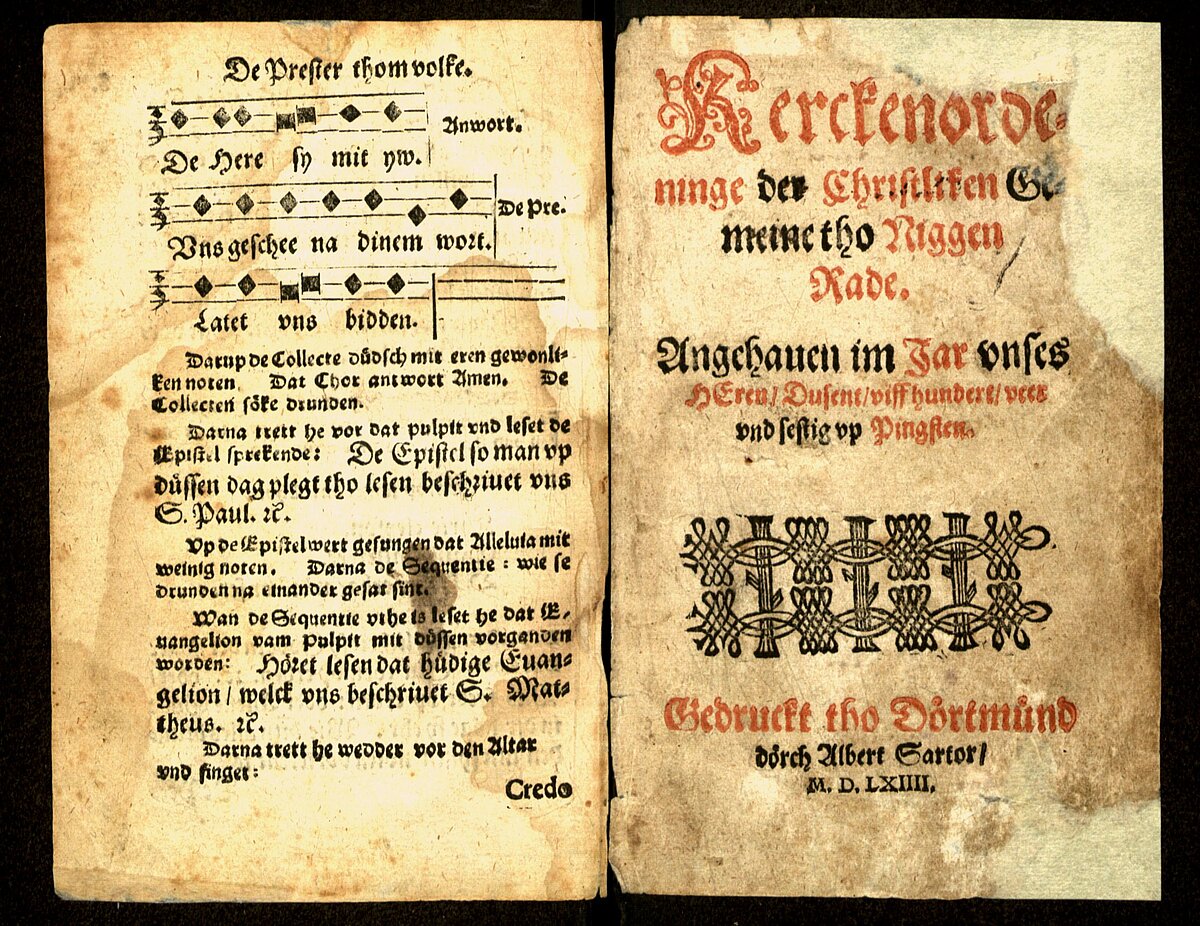 De Prester thom volke.
Anwort.
De Here sy mit yw.
De Pre.
Vns geschee na dinem wort.
Latet vns bidden.
Darup de Collecte düdsch mit eren gewonli-
ken noten. Dat Chor antwort Amen. De
Collecten söke drunden.
Darna trett he vor dat pulpit vnd leset de
Epistel sprekende: De Epistel so man vp
düssen dag plegt tho lesen beschriuet vns
S. Paul. ꝛc.
Vp de Epistel wert gesungen dat Alleluia mit
weinig noten. Darna de Sequentie: wie se
drunden na einander gesat sint.
Wan de Sequentie vthe is leset he dat E-
uangelion vam Pulpit mit düssen vörganden
worden: Höret lesen dat hüdige Euan-
gelion / welck vns beschriuet S. Mat-
theus. ꝛc.
Darna trett he wedder vor den Altar
vnd singet:
Credo
Kerckenorde-
ninge der Christliken Ge-
meine tho Niggen
Rade.
Angehauen im Jar vnses
HEren / Dusent / viff hundert / veer
vnd sestig vp Pingsten.
Gedruckt tho Dörtmünd
dörch Albert Sartor /
M. D. LXIIII.